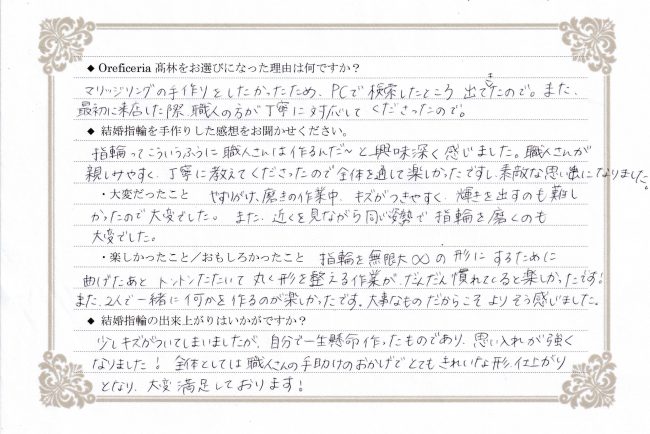 ◆ Oreficeria 髙林をお選びになった理由は何ですか？
マリッジリングの手作りをしたかったため、PCで検索したところ 出てきたので。また、
最初に来店した際、職人の方が丁寧に対応して くださったので。
◆ 結婚指輪を手作りした感想をお聞かせください。
指輪ってこういうふうに職人さんは作るんだ〜と興味深く感じました。職人さんが
親しみやすく、丁寧に教えてくださったので全体を通して楽しかったですし、素敵な思い出になりました。
・大変だったこと やすりがけ、磨きの作業中、キズがつきやすく、輝きを出すのも難し
かったので大変でした。また、近くを見ながら同じ姿勢で 指輪を磨くのも
大変でした。
・楽しかったこと／おもしろかったこと 指輪を無限大∞の形に するために
曲げたあと トントンたたいて 丸く形を整える作業が、だんだん慣れてくると楽しかったです！
また、2人で一緒に何かを作るのが楽しかったです。大事なものだからこそ よりそう感じました。
◆ 結婚指輪の出来上がりはいかがですか？
少しキズがついてしまいましたが、自分で一生懸命作ったものであり、思い入れが強く
なりました！ 全体としては職人さんの手助けのおかげでとてもきれいな形、仕上がり
となり、大変満足しております！